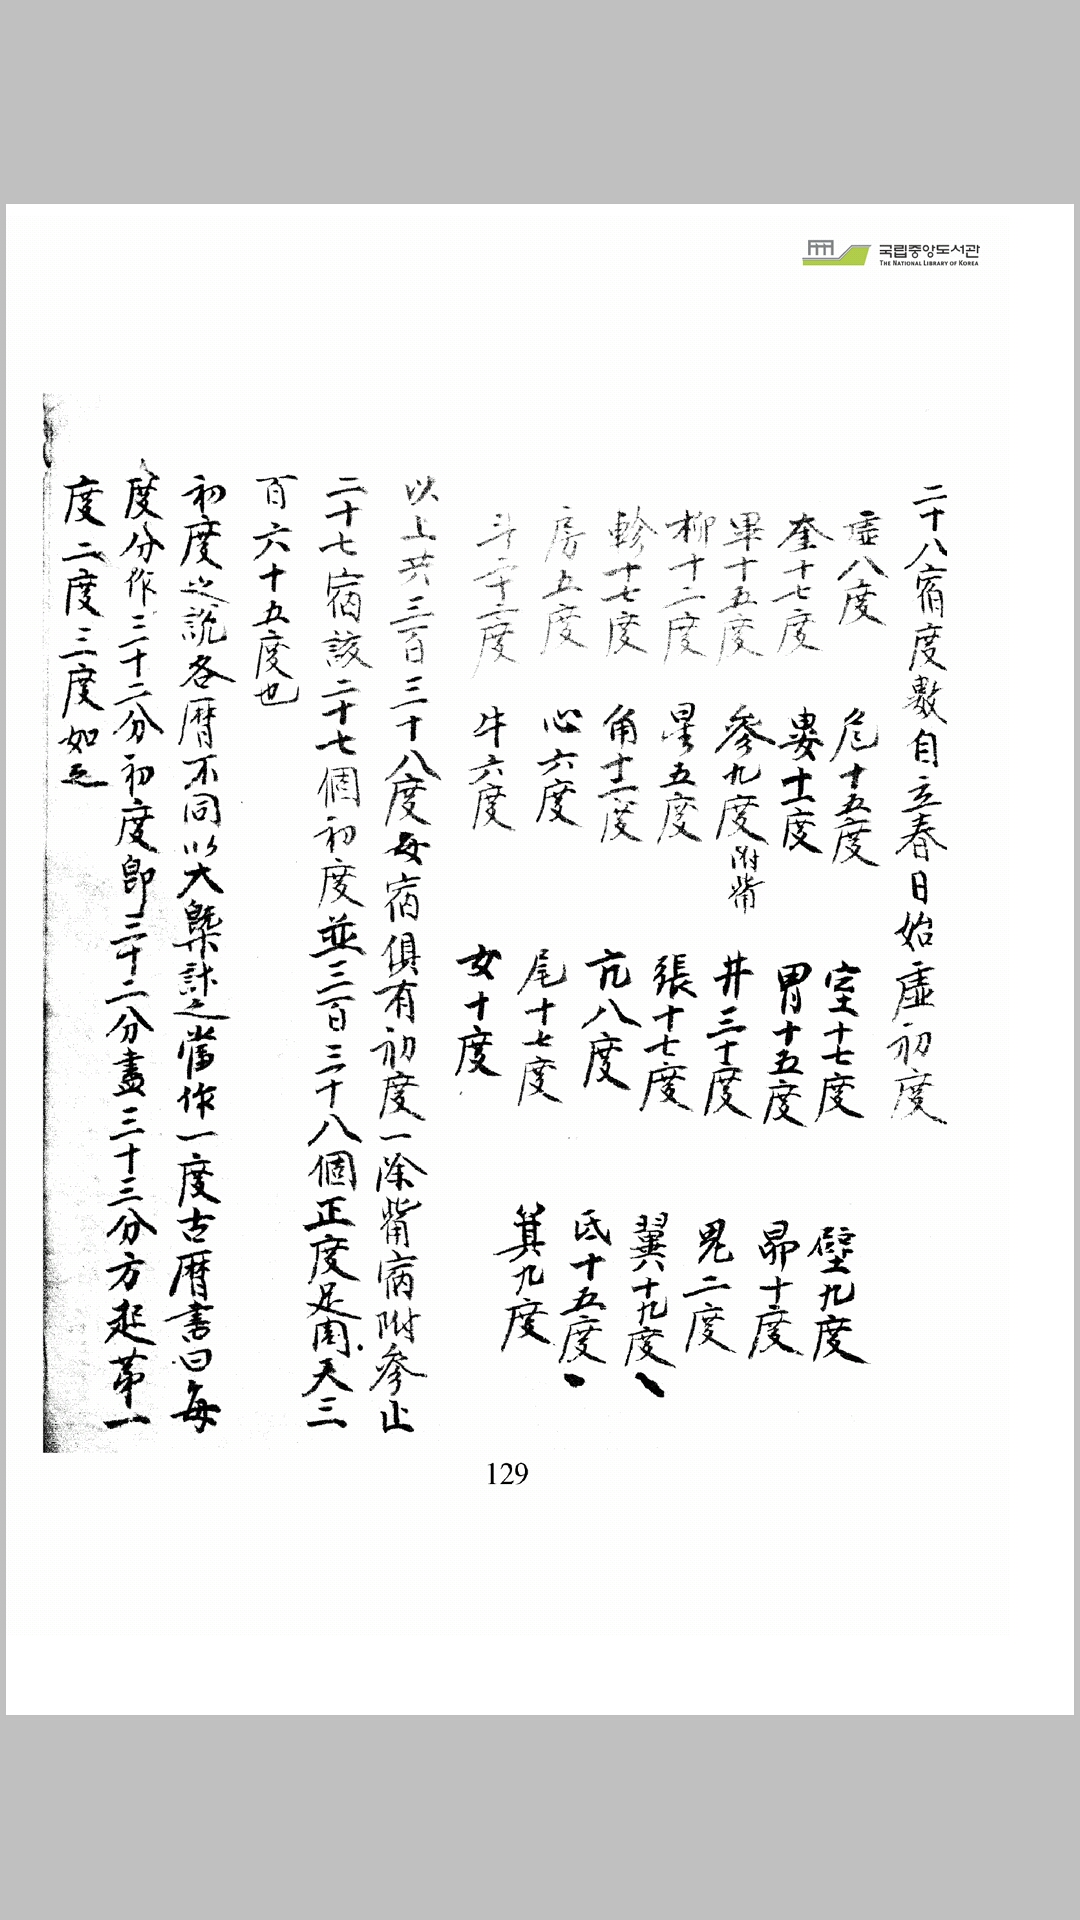 국립중앙도서관
THE NATIONAL LIBRARY OF KOREA
二十八宿度數自立春日始虛初度
虛八度 危十五度 室十七度 壁九度
奎十七度 婁十二度 胃十五度 昴十度
畢十五度 參九度附觜 井三十度 鬼二度
柳十二度 星五度 張十七度 翼十九度
軫十七度 角十二度 亢八度 氐十五度
房五度 心六度 尾十七度 箕九度
斗二十二度 牛六度 女十度
以上共三百三十八度每宿俱有初度一除觜宿附參止
二十七宿該二十七個初度並三百三十八個正度足周天三
百六十五度也
初度之說各曆不同以大槩計之當作一度古曆書曰每
度分作三十二分初度卽三十二分盡三十三分方起第一
度二度三度如
129